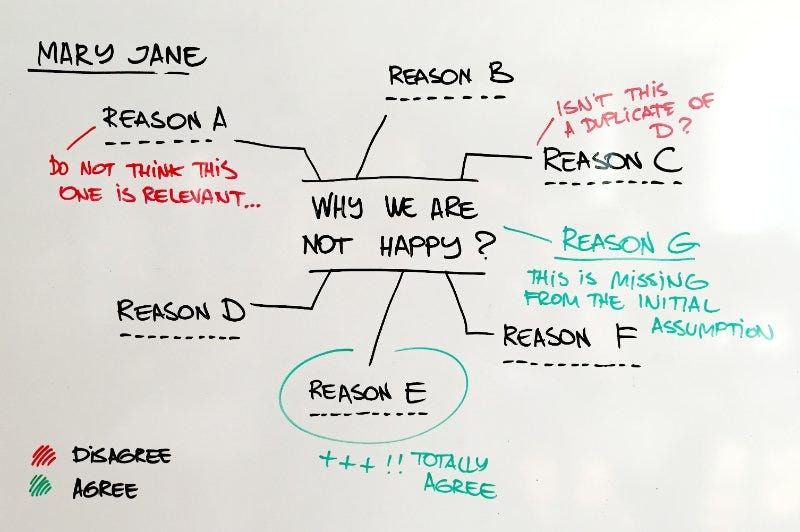 MARY JANE
REASON B
REASON A
ISN'T THIS
A DUPLICATE OF
D?
REASON C
DO NOT THINK THIS
ONE IS RELEVANT...
WHY WE ARE
NOT HAPPY?
REASON G
THIS IS MISSING
FROM THE INITIAL
ASSUMPTION
REASON D
REASON F
REASON E
+++!! TOTALLY
AGREE
DISAGREE
AGREE